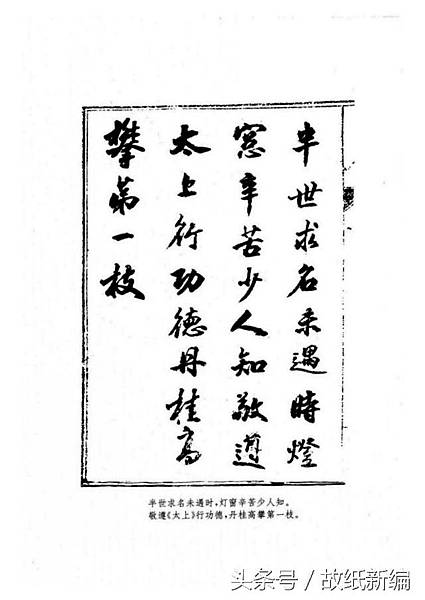 半世求名未遇時燈
窓辛苦少人知敬遵
太上行功德丹桂高
攀第一枝
半世求名未遇时,灯窗辛苦少人知。
敬遵《太上》行功德,丹桂高攀第一枝。
头条号／故纸新编